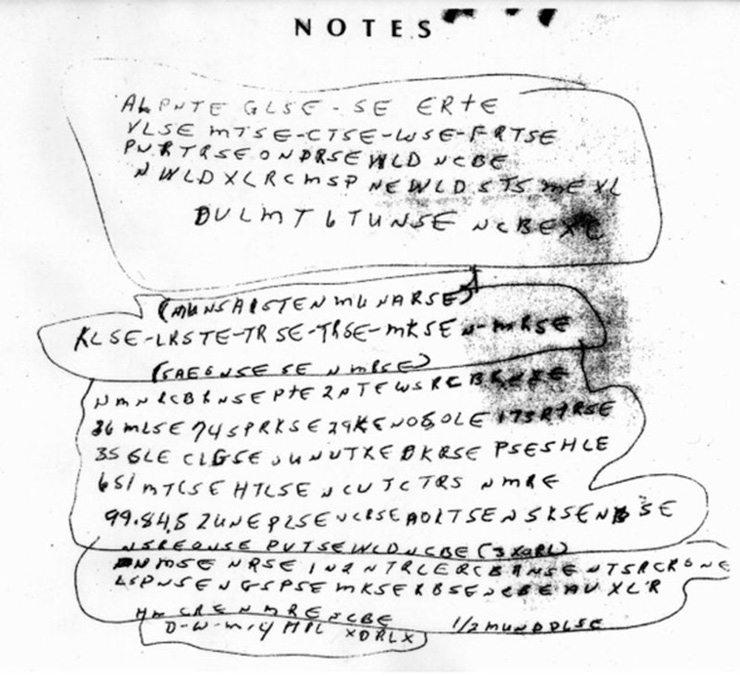 NOTES
ALPNTE GLSE - SE ERTE
VLSE MTSE-CTSE-WSE-FRTSE
PNRTRSE ONDRSE WLD NCBE
NWLDXLRCMSP NEWLDSTS MEXL
DULMT 6 TUNSE NCBE XC
(MUNSAISTEN MUNARSE)
KLSE-LRSTE-TRSE-TRSE-MKSEN-MRSE
(SAE6NSE SE NMRSE)
NMNRCBRNSE PTE 2 NTEWSRCBRNSE
36 MLSE 74 SPRKSE 29KENOSOLE 173RTRSE
35 GLE CLGSE UNUTXE DKRSE PSESHLE
651 MTCSE HTLSE NCUTCTRS NMRE
99.84.5 ZUNE PLSE NCRSE AOLTSE NSKSE N SE
NSREONSE PUTSE WLD NCBE (3XORL)
NMSE NRSE IN2NTRLERCBRNSE NTSRCRONE
LSPNSE NGSPSE MKSERBSE NCBE AUXLR
HM CRE NMRE NCBE 1/2 MUNDDLSE
D-W-M-4 MPL XDRLX